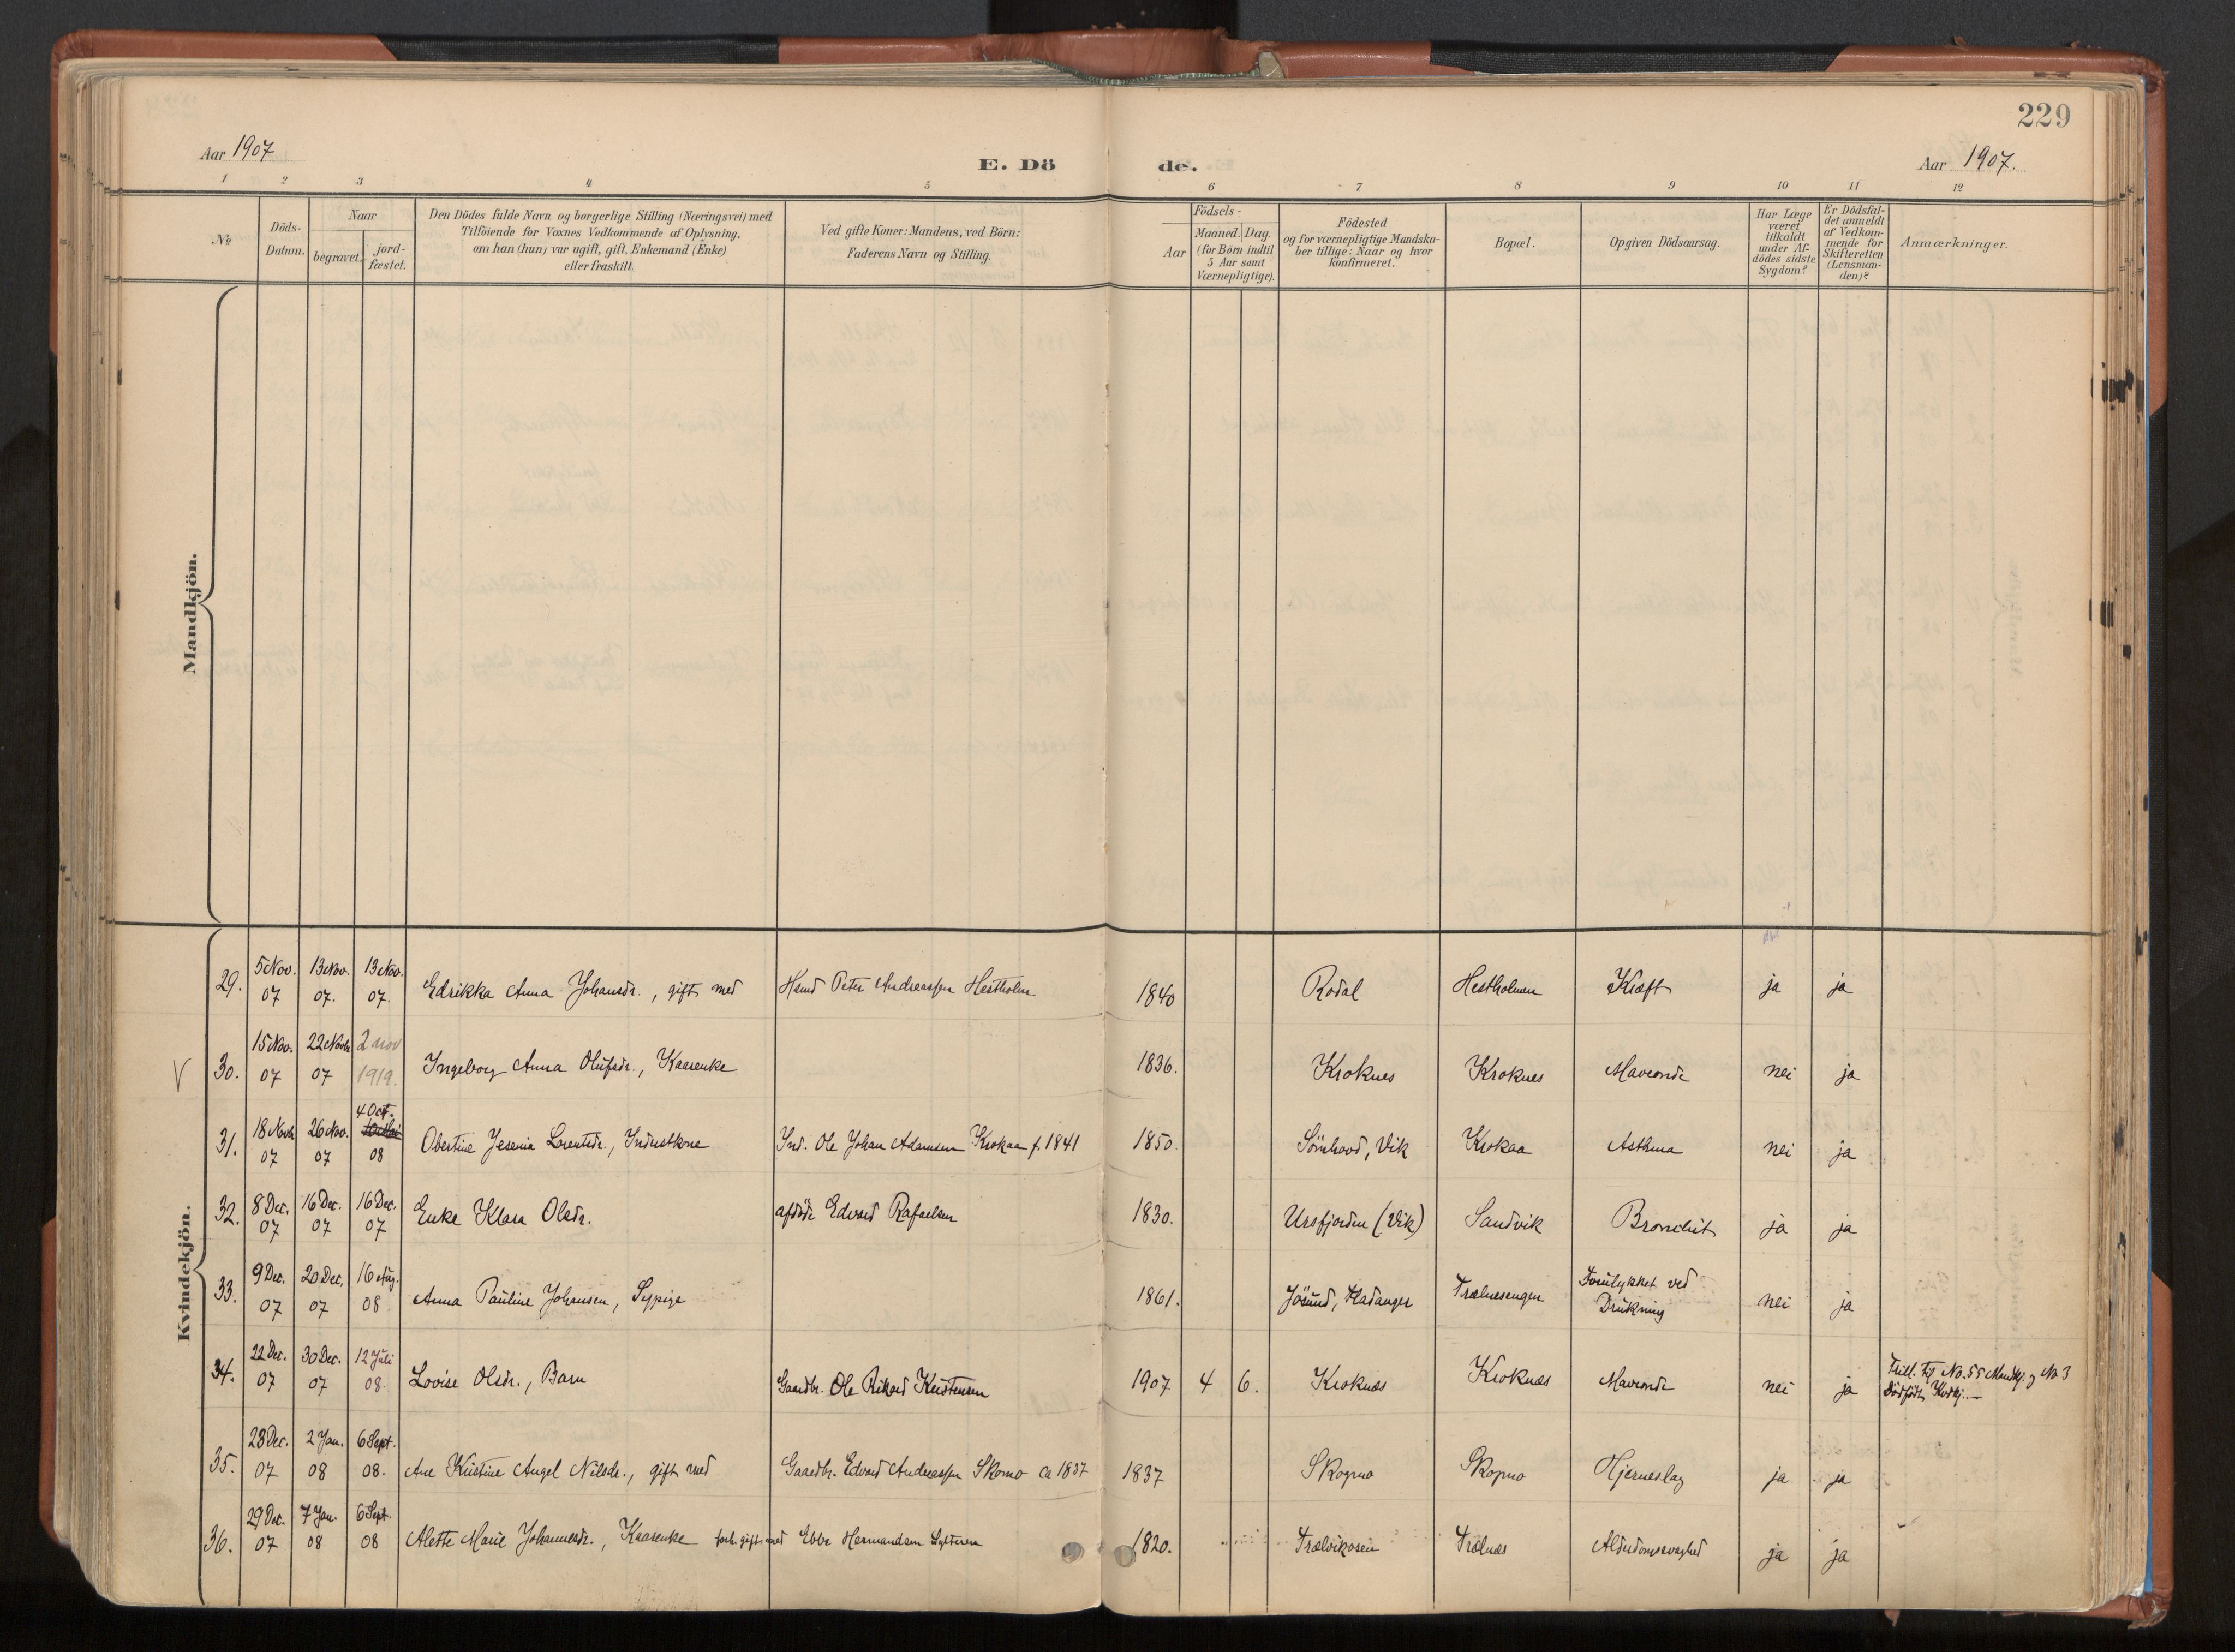 229
Aar 1907
E. Dö
de.
Aar 1907.
1 2 3 4 5 6 7 8 9 10 11 12
No
Döds-
Datum.
Naar
begravet.
jord-
fæstet.
Den Dödes fulde Navn og borgerlige Stilling (Næringsvei) med
Tilföiende for Voxnes Vedkommende af Oplysning,
om han (hun) var ugift, gift, Enkemand (Enke)
eller fraskilt.
Ved gifte Koner: Mandens, ved Börn:
Faderens Navn og Stilling.
Födsels-
Aar
Maaned. Dag.
(for Börn indtil
5 Aar samt
Værnepligtige).
Födested
og for værnepligtige Mandska-
ber tillige: Naar og hvor
konfirmeret.
Bopæl.
Opgiven Dödsaarsag.
Har Læge
været
tilkaldt
under Af-
dödes sidste
Sygdom?
Er Dödsfal-
det anmeldt
af Vedkom-
mende for
Skifteretten
(Lensman-
den)?
Anmærkninger.
Mandkjön.
Kvindekjön.
29. 5 Nov. 07 13 Nov. 07. 13 Nov. 07. Edrikka Anna Johansdr., gift med Hmd Peter Andreassen Hestholm 1840 Rödal Hestholmen Kræft ja ja
V 30. 15 Nov. 07 22 Novb. 07 2 nov 1919. Ingeborg Anna Olufsdr., Kaarenke 1836. Kroknes Kroknes Maveonde nei ja
31. 18 Novb. 07 26 Nov. 07 4 Oct. 08 Obertine Jesenia Lorentsdr., Inderstkone Ind. Ole Johan Adamsen Krokaa f. 1841 1850. Sömhovd, Vik Krokaa Asthma nei ja
32. 8 Dec. 07 16 Dec. 07 16 Dec. 07 Enke Klara Olsdr. afdöde Edvard Rafaelsen 1830. Ursfjorden (Vik) Sandvik Bronchit ja ja
33. 9 Dec. 07 20 Dec. 07 16 Aug. 08 Anna Pauline Johansen, Sypige 1861. Jösund, Fladanger Trælnesengen Forulykket ved
Drukning nei ja
34. 22 Dec. 07 30 Dec. 07 12 Juli 08. Lovise Olsdr., Barn Gaardbr. Ole Rikard Kristensen 1907 4 6. Kroknæs Kroknæs Maveonde nei ja Trill. Fif No. 55 Mandkj. og No 3
Dödfödt Kvdkj.
35. 28 Dec. 07 2 Jan. 08 6 Sept. 08. Ane Kristine Angel Nilsdr., gift med Gaardbr. Edvard Andreassen Skomo ca 1837 1837 Skogmo Skogmo Hjerneslag ja ja
36. 29 Dec. 07 7 Jan. 08 6 Sept. 08 Alette Marie Johannesdr., Kaarenke forh. gift med Ebbe Hermandsen 1820. Trælvikosen Trælnæs Alderdomssvaghed ja ja